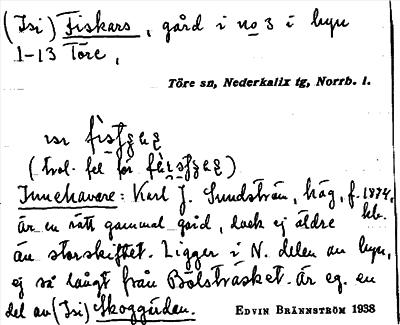 (Isi) Fiskars, gård i no 3 i byn
1-13 Töre,
Töre sn, Nederkalix tg, Norrb. l.
(trol. fel för
Innehavare: Karl J. Sundström, häg, f. 1874,
är en rätt gammal gård, dock ej äldre
än storskiftet. Ligger i N. delen av byn,
ej så långt från Bolsträsket. Är eg. en
del av (Isi) Skoggården.
EDVIN BRÄNNSTRÖM 1938